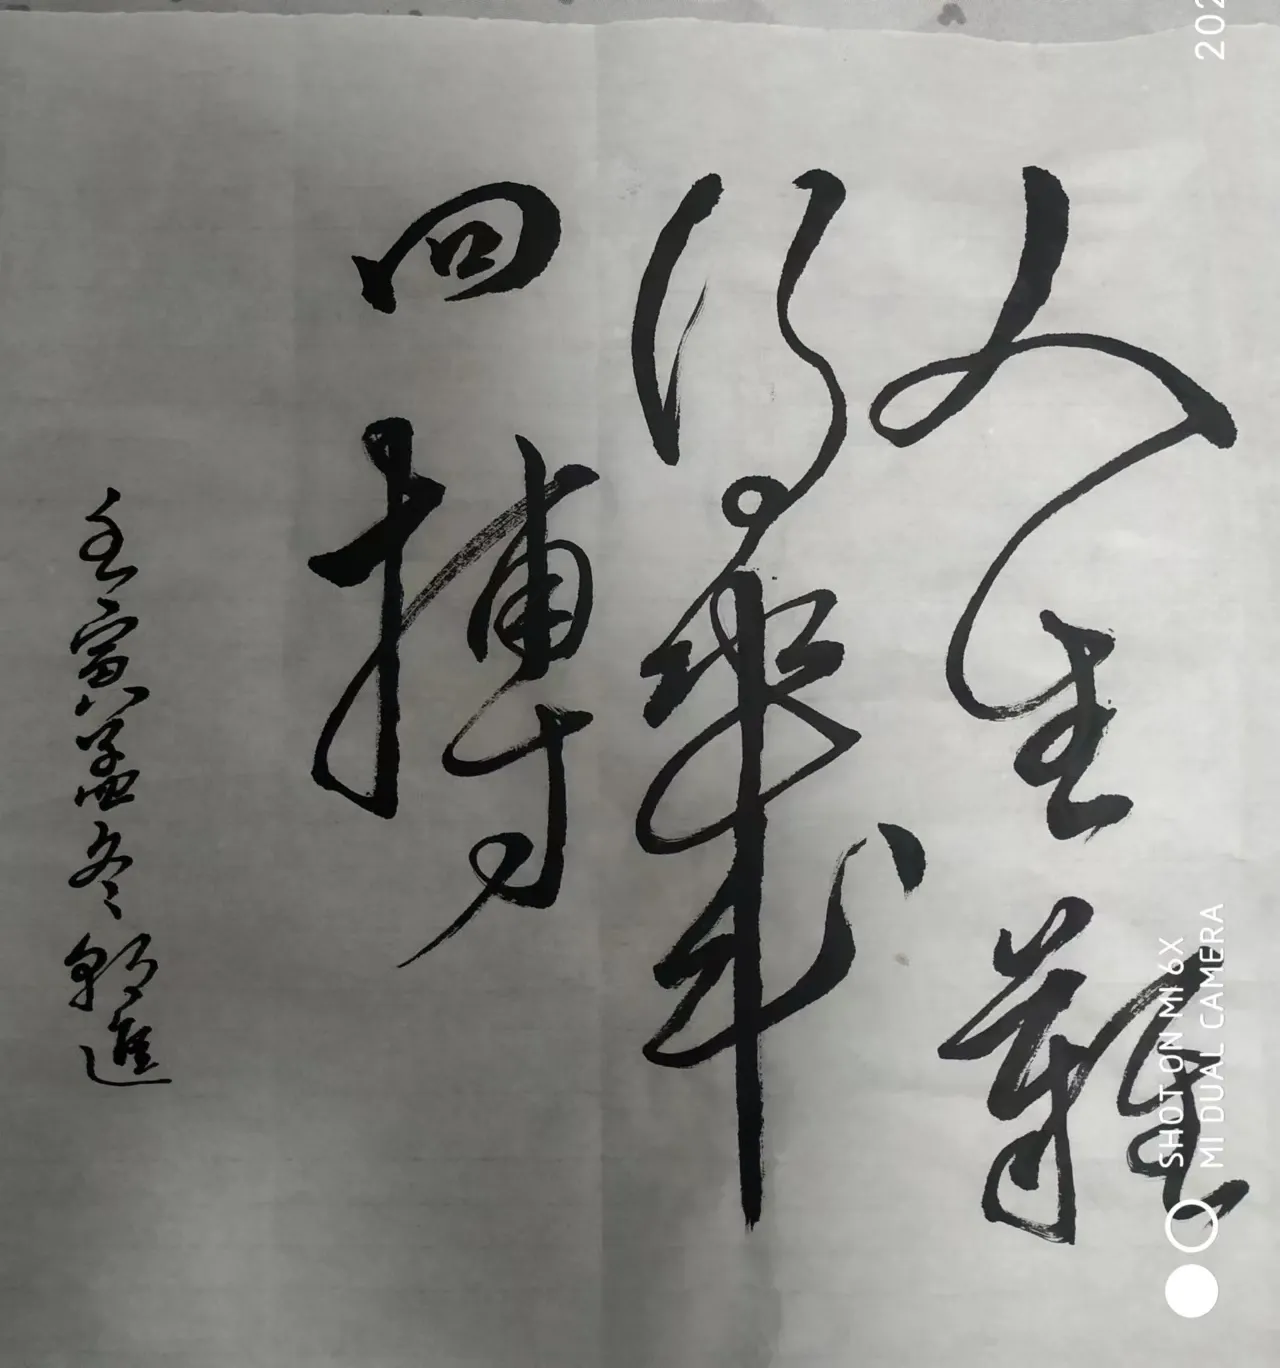 人生難
得幾
回搏
壬寅孟冬進
SHOT ON MI 6X
MI DUAL CAMERA
202